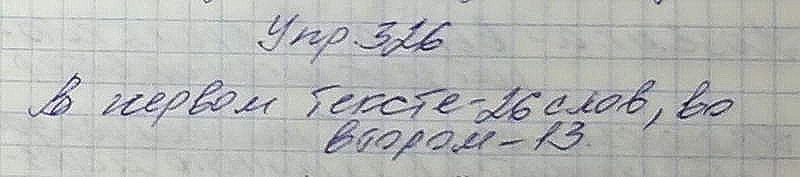 Упр. 326
В первом тексте-26 слов, во
втором-13.